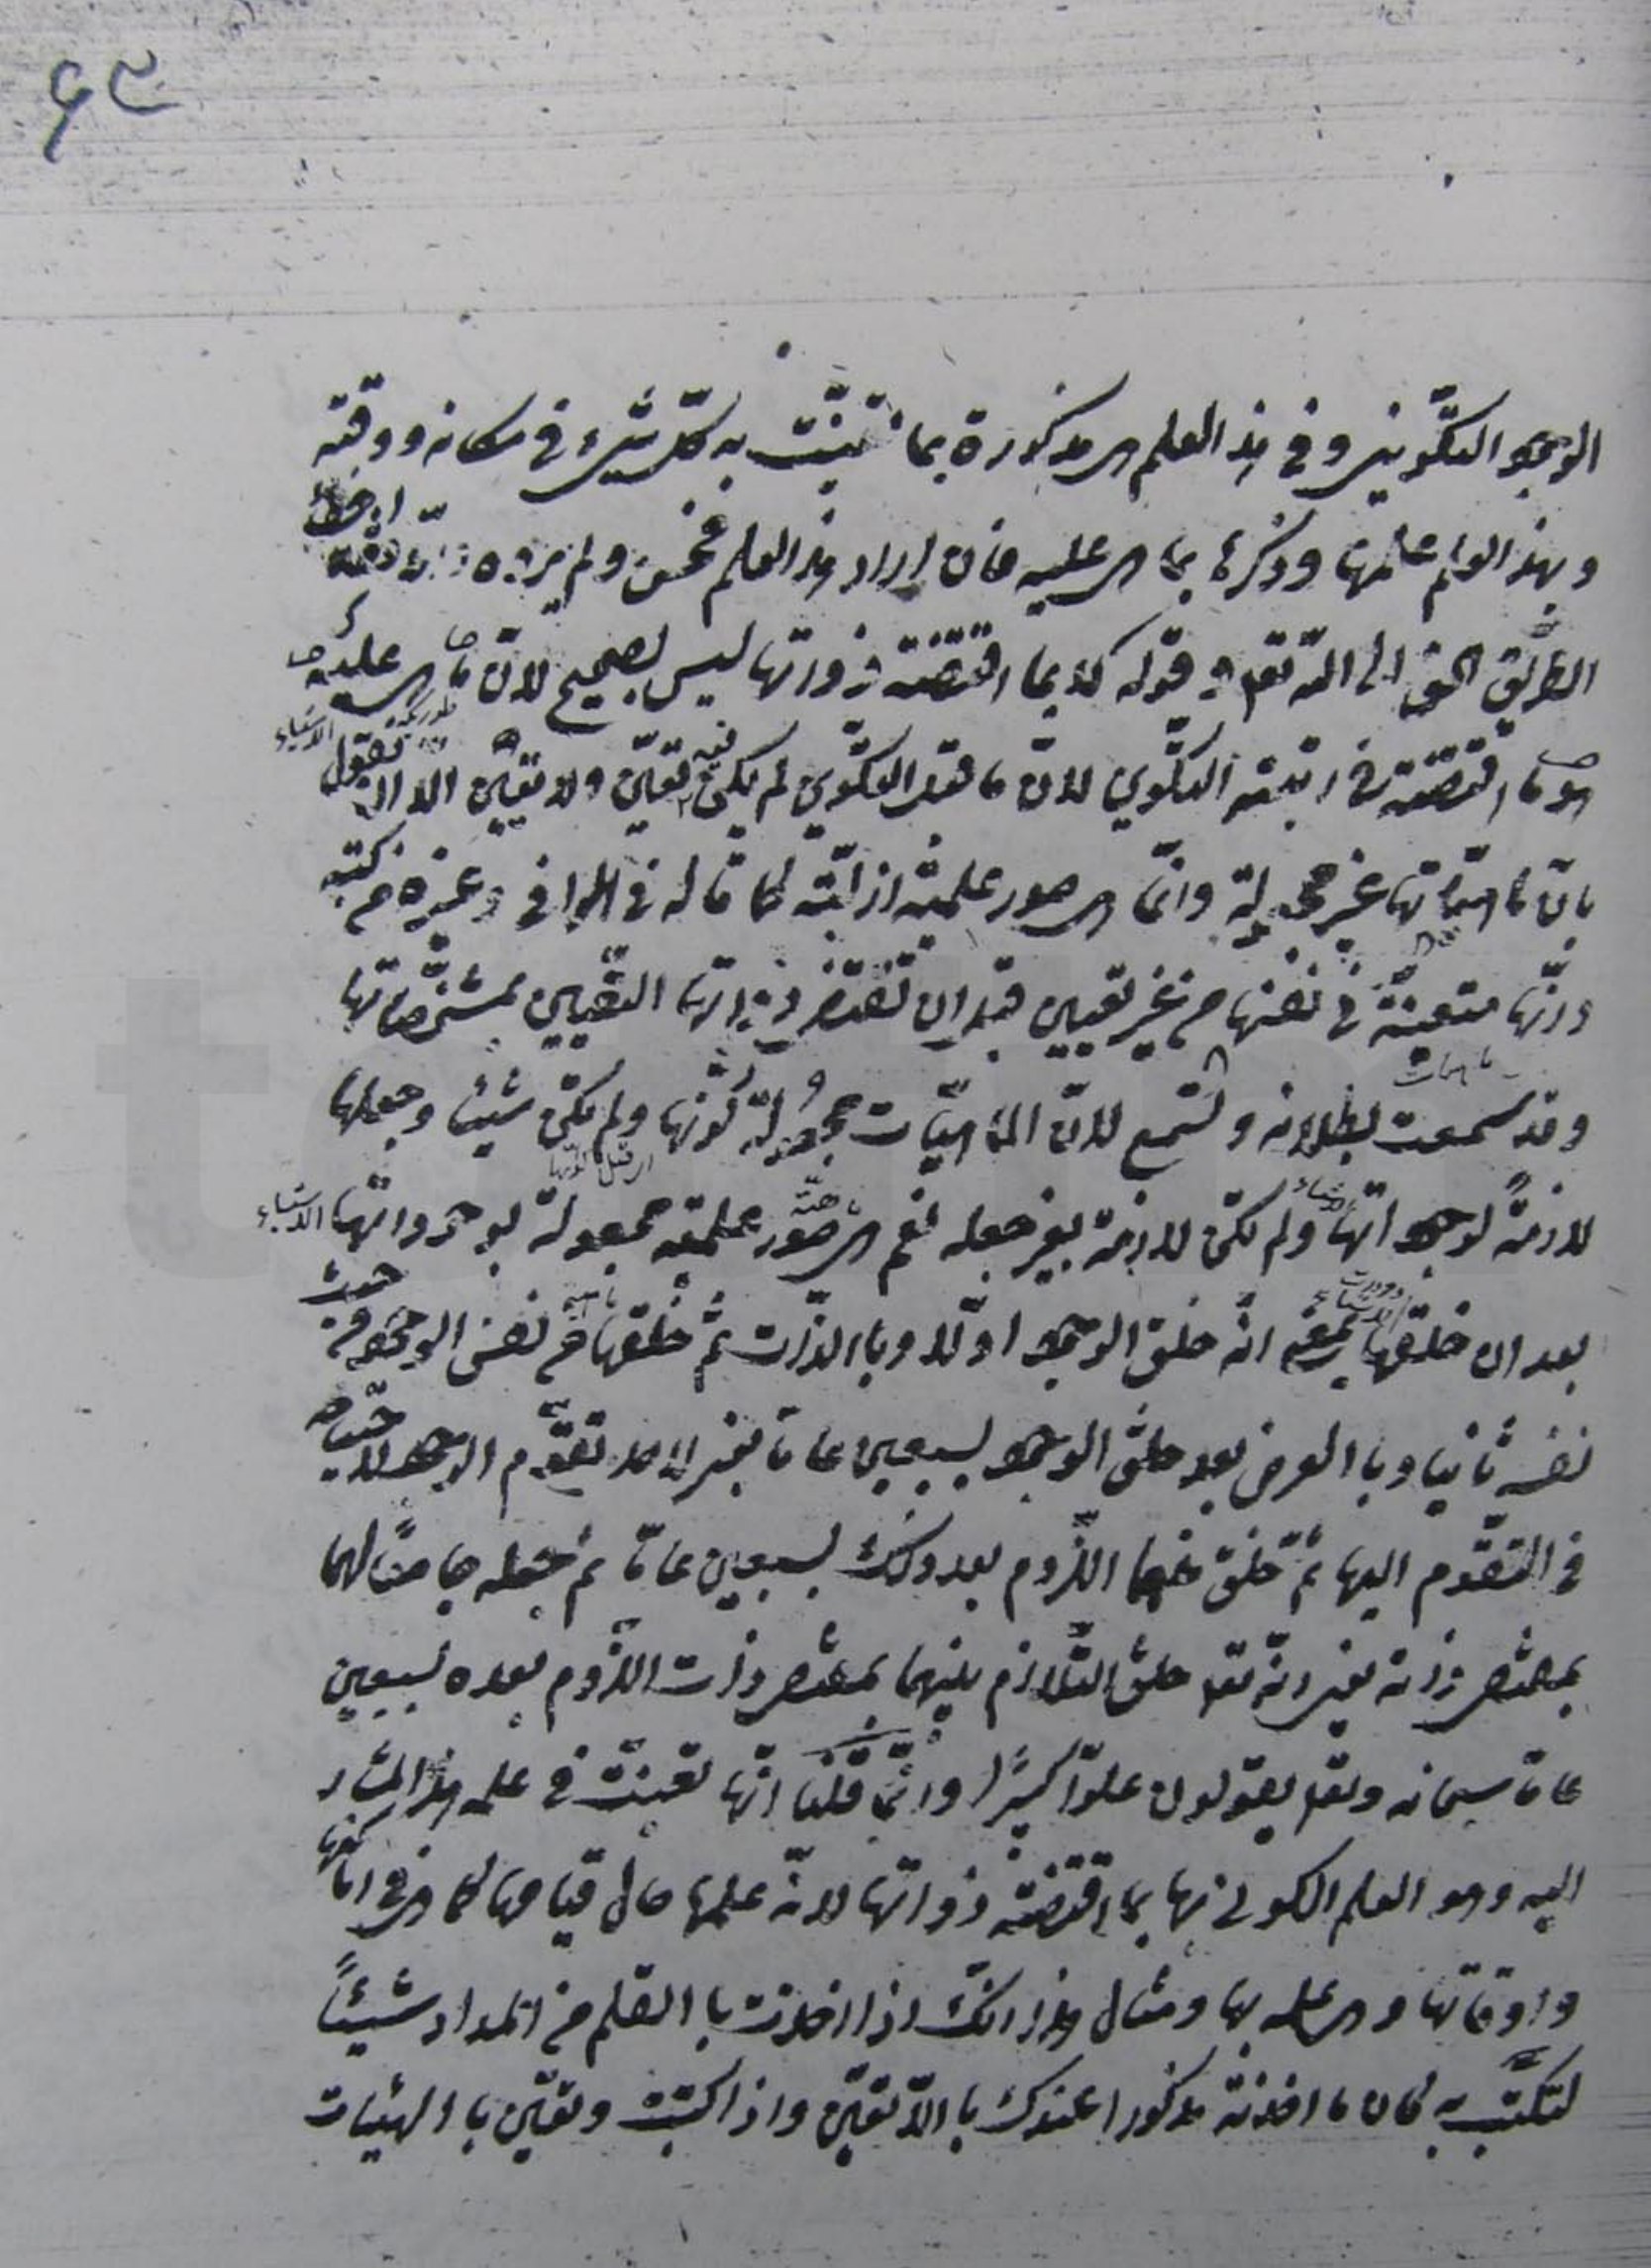 ٩٣
الوجود التكويني وفي هذا العلم هي مذكورة بما تعيّنت به كلّ شيء في مكانه ووقته
وبهذا العلم علمها وذكرها بما هي عليه فان اراد هذا العلم فحسن ولم يرده اخطأ
الطريق الحق الى الله تعالى وقوله لا بما اقتضته ذواتها ليس بصحيح لانّ ما هي عليه
هو ما اقتضته في رتبته التكوين لانّ ما قبل التكوين لم يكن فيه تعيّن ولا تعيين الا ان تقول
الاشياء
بانّ ماهيّاتها غير مجعولة وانّما هي صور علمية ازليّة كما قاله في الوافي وغيره من كتبه
وانّها متعينة في نفسها من غير تعيين قبل ان تقتضي ذواتها التعيين بمشخّصاتها
وقد سمعت بطلانه وتسمع لانّ الماهيّات مجعولة كوّنها ولم تكن شيئا وجعلها
ماهيات
لازمةً لوجوداتها ولم تكن لازمة بغير جعله نعم هي صور علمية مجعولة لوجوداتها
الاشياء
بعد ان خلقها بمعنى انّه خلق الوجود اولا وبالذّات ثمّ خلقها من نفس الوجود من حيث
نفسه ثانيا وبا العرض بعد خلق الوجود بسبعين عاما بغير امد تقدّم الوجود لاحتياجه
في التقوّم اليها ثمّ خلق منهما اللّزوم بعد ذلك بسبعين عامّا ثم جعله جامعًا لهما
بمقتضى ذاته بغير انّه تعالى خلق التلازم بينهما بمقتضى ذات اللزوم بعده بسبعين
عاما سبحانه وتعالى يقولون علوّا كبيرًا وانّما قلنا انّها تعينت في علمه هذا المشار
اليه وهو العلم الكوني بها بما اقتضته ذواتها لانّه علمها حال قيامها كما هي في امكنتها
واوقاتها وهي علمه بها ومثال هذا انّك اذا اخذت با القلم من المداد شيئاً
لتكتب به كان ما اخذته مذكورا عندك با اللّا تعيّن واذا كتبت وتعيّن با الهيئات